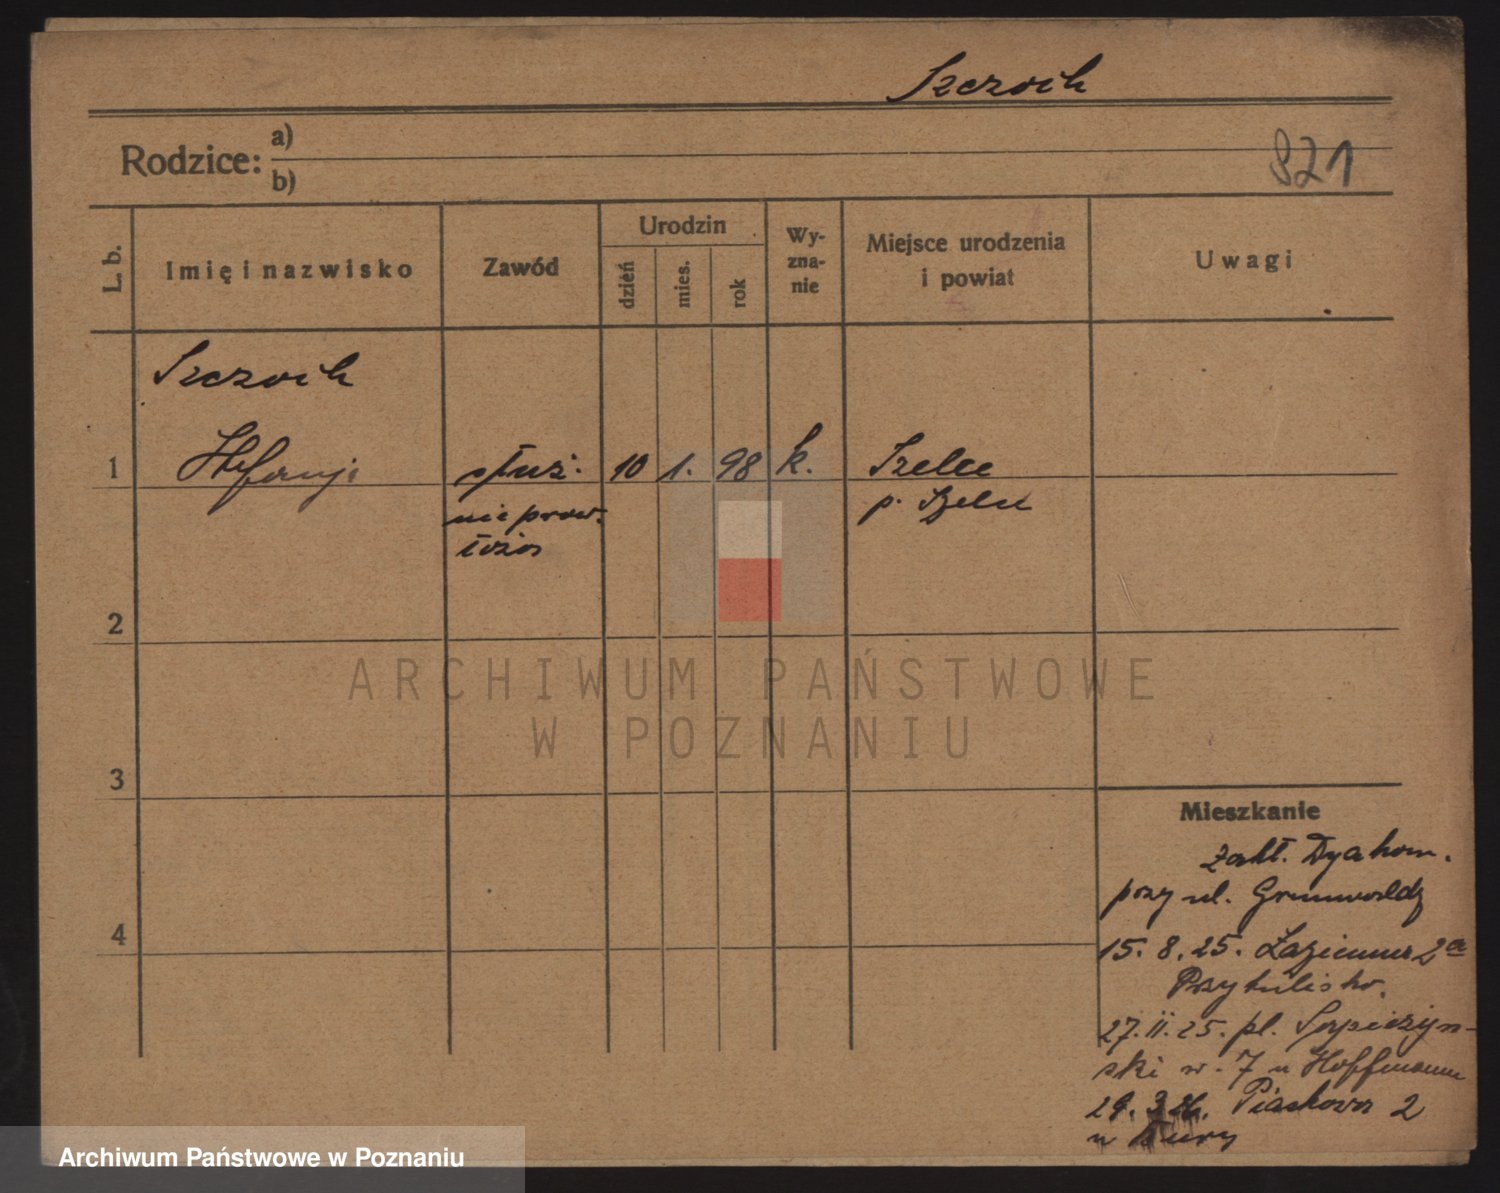 Szczoch
Rodzice: a)
b)
821
L. b.
Imię i nazwisko
Zawód
Urodzin
dzień
mies.
rok
Wy-
zna-
nie
Miejsce urodzenia
i powiat
Uwagi
Szczoch
1 służ. 10 1. 98 k.
p.
nie
2
3
4
Mieszkanie
Zakł. Dyakon.
przy ul. Grunwaldz
15. 8. 25. 2a
Przytulisko.
27. II. 25. pl. Sapieżyn-
ski 7 u Hoffmann
29. Piaskowa 2
u
ARCHIWUM PAŃSTWOWE
W POZNANIU
Archiwum Państwowe w Poznaniu